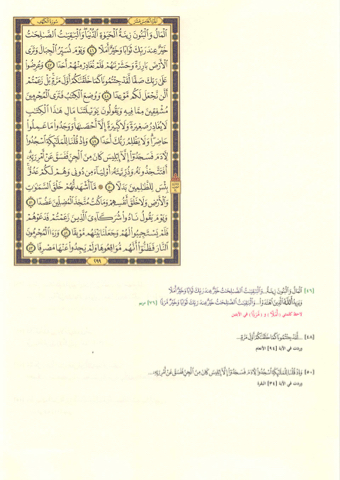 الجزء الخامس عشر
سورة الكهف
ٱلْمَالُ وَٱلْبَنُونَ زِينَةُ ٱلْحَيَوٰةِ ٱلدُّنْيَا وَٱلْبَٰقِيَٰتُ ٱلصَّٰلِحَٰتُ
خَيْرٌ عِندَ رَبِّكَ ثَوَابًا وَخَيْرٌ أَمَلًا ٤٦ وَيَوْمَ نُسَيِّرُ ٱلْجِبَالَ وَتَرَى
ٱلْأَرْضَ بَارِزَةً وَحَشَرْنَٰهُمْ فَلَمْ نُغَادِرْ مِنْهُمْ أَحَدًا ٤٧ وَعُرِضُوا۟
عَلَىٰ رَبِّكَ صَفًّا لَّقَدْ جِئْتُمُونَا كَمَا خَلَقْنَٰكُمْ أَوَّلَ مَرَّةٍۭ بَلْ زَعَمْتُمْ
أَلَّن نَّجْعَلَ لَكُم مَّوْعِدًا ٤٨ وَوُضِعَ ٱلْكِتَٰبُ فَتَرَى ٱلْمُجْرِمِينَ
مُشْفِقِينَ مِمَّا فِيهِ وَيَقُولُونَ يَٰوَيْلَتَنَا مَالِ هَٰذَا ٱلْكِتَٰبِ
لَا يُغَادِرُ صَغِيرَةً وَلَا كَبِيرَةً إِلَّآ أَحْصَىٰهَا وَوَجَدُوا۟ مَا عَمِلُوا۟
حَاضِرًا وَلَا يَظْلِمُ رَبُّكَ أَحَدًا ٤٩ وَإِذْ قُلْنَا لِلْمَلَٰٓئِكَةِ ٱسْجُدُوا۟
لِءَادَمَ فَسَجَدُوٓا۟ إِلَّآ إِبْلِيسَ كَانَ مِنَ ٱلْجِنِّ فَفَسَقَ عَنْ أَمْرِ رَبِّهِۦٓ
أَفَتَتَّخِذُونَهُۥ وَذُرِّيَّتَهُۥٓ أَوْلِيَآءَ مِن دُونِى وَهُمْ لَكُمْ عَدُوٌّۢ
بِئْسَ لِلظَّٰلِمِينَ بَدَلًا ٥٠ مَّآ أَشْهَدتُّهُمْ خَلْقَ ٱلسَّمَٰوَٰتِ
وَٱلْأَرْضِ وَلَا خَلْقَ أَنفُسِهِمْ وَمَا كُنتُ مُتَّخِذَ ٱلْمُضِلِّينَ عَضُدًا ٥١
وَيَوْمَ يَقُولُ نَادُوا۟ شُرَكَآءِىَ ٱلَّذِينَ زَعَمْتُمْ فَدَعَوْهُمْ
فَلَمْ يَسْتَجِيبُوا۟ لَهُمْ وَجَعَلْنَا بَيْنَهُم مَّوْبِقًا ٥٢ وَرَءَا ٱلْمُجْرِمُونَ
ٱلنَّارَ فَظَنُّوٓا۟ أَنَّهُم مُّوَاقِعُوهَا وَلَمْ يَجِدُوا۟ عَنْهَا مَصْرِفًا ٥٣
٢٩٩
[٤٦] ٱلْمَالُ وَٱلْبَنُونَ زِينَةُ ... وَٱلْبَٰقِيَٰتُ ٱلصَّٰلِحَٰتُ خَيْرٌ عِندَ رَبِّكَ ثَوَابًا وَخَيْرٌ أَمَلًا
وَيَزِيدُ ٱللَّهُ ٱلَّذِينَ ٱهْتَدَوْا۟ ... وَٱلْبَٰقِيَٰتُ ٱلصَّٰلِحَٰتُ خَيْرٌ عِندَ رَبِّكَ ثَوَابًا وَخَيْرٌ مَّرَدًّا [٧٦] مريم
[٤٨] ... لَّقَدْ جِئْتُمُونَا كَمَا خَلَقْنَٰكُمْ أَوَّلَ مَرَّةٍ ...
وردت في الآية [٩٤] الأنعام
[٥٠] وَإِذْ قُلْنَا لِلْمَلَٰٓئِكَةِ ٱسْجُدُوا۟ لِءَادَمَ فَسَجَدُوٓا۟ إِلَّآ إِبْلِيسَ كَانَ مِنَ ٱلْجِنِّ فَفَسَقَ عَنْ أَمْرِ رَبِّهِۦٓ ...
وردت في الآية [٣٤] البقرة